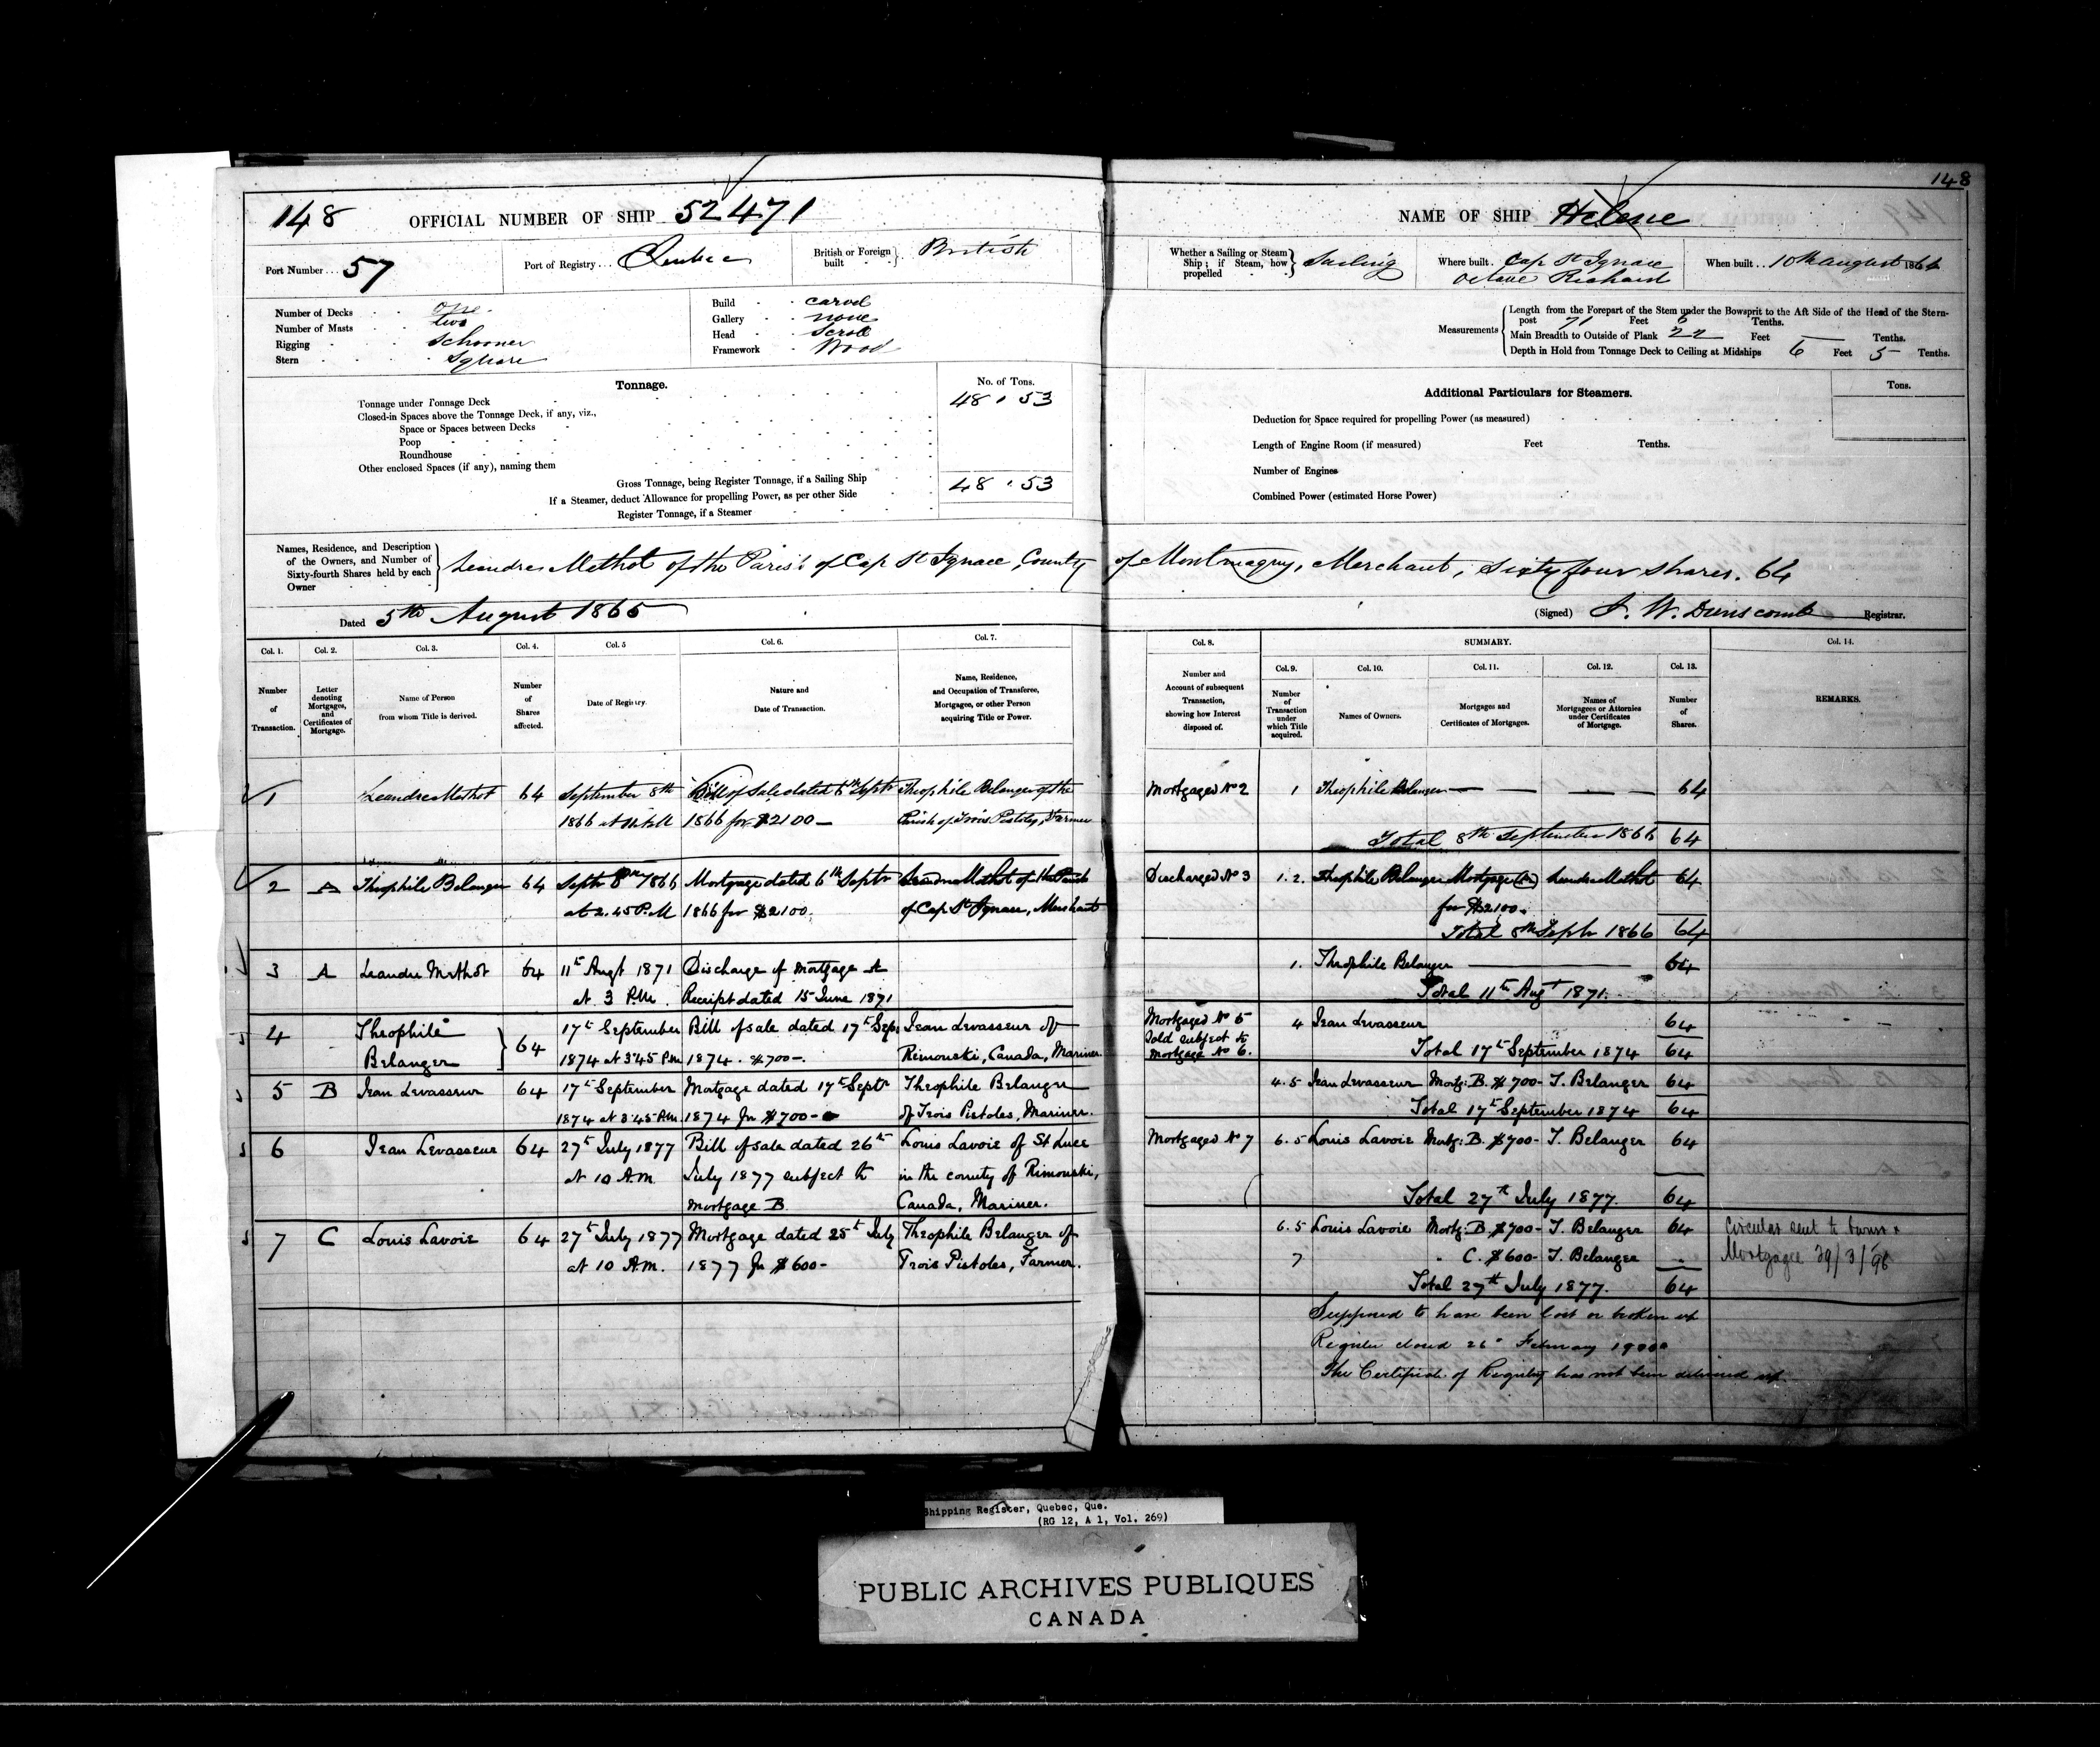 148
148 OFFICIAL NUMBER OF SHIP 52471
NAME OF SHIP Helene
Port Number... 57
Port of Registry... Quebec
British or Foreign built } British
Whether a Sailing or Steam Ship; if Steam, how propelled } Sailing
Where built. Cap St Ignace
Octave Richard
When built.. 10th August 1866
Number of Decks one
Number of Masts two
Rigging Schooner
Stern Square
Build carvel
Gallery none
Head Scroll
Framework Wood
Measurements { Length from the Forepart of the Stem under the Bowsprit to the Aft Side of the Head of the Stern-
post 71 Feet 6 Tenths.
Main Breadth to Outside of Plank 22 Feet — Tenths.
Depth in Hold from Tonnage Deck to Ceiling at Midships 6 Feet 5 Tenths.
Tonnage.
No. of Tons.
Tonnage under Tonnage Deck 48.53
Closed-in Spaces above the Tonnage Deck, if any, viz.,
Space or Spaces between Decks
Poop
Roundhouse
Other enclosed Spaces (if any), naming them
Gross Tonnage, being Register Tonnage, if a Sailing Ship 48.53
If a Steamer, deduct Allowance for propelling Power, as per other Side
Register Tonnage, if a Steamer
Additional Particulars for Steamers.
Tons.
Deduction for Space required for propelling Power (as measured)
Length of Engine Room (if measured) Feet Tenths.
Number of Engines
Combined Power (estimated Horse Power)
Names, Residence, and Description
of the Owners, and Number of
Sixty-fourth Shares held by each
Owner
Leandre Methot of the Parish of Cap St Ignace, County of Montmagny, Merchant, Sixty four shares. 64
Dated 5th August 1866
(Signed) J. W. Dunscomb Registrar.
Col. 1. Col. 2. Col. 3. Col. 4. Col. 5 Col. 6. Col. 7.
Number of Transaction.
Letter denoting Mortgages, and Certificates of Mortgage.
Name of Person from whom Title is derived.
Number of Shares affected.
Date of Registry.
Nature and Date of Transaction.
Name, Residence, and Occupation of Transferee, Mortgagee, or other Person acquiring Title or Power.
Col. 8. SUMMARY. Col. 14.
Col. 9. Col. 10. Col. 11. Col. 12. Col. 13.
Number and Account of subsequent Transaction, showing how Interest disposed of.
Number of Transaction under which Title acquired.
Names of Owners.
Mortgages and Certificates of Mortgages.
Names of Mortgagees or Attornies under Certificates of Mortgage.
Number of Shares.
REMARKS.
1 Leandre Methot 64 September 8th Bill of Sale dated 6th Septr Theophile Belanger of the
1866 at 1866 for $2100 — Parish of Trois Pistoles, Farmer
Mortgaged No 2 1 Theophile Belanger — — — — 64
Total 8th September 1866 64
2 A Theophile Belanger 64 Septr 8th 1866 Mortgage dated 6th Septr Leandre Methot of the Parish
at 2.45 P.M 1866 for $2100. of Cap St Ignace, Merchant
Discharged No 3 1.2. Theophile Belanger Mortgage (A) Leandre Methot 64
for $2100.
Total 8th Septr 1866 64
3 A Leandre Methot 64 11th Augt 1871 Discharge of Mortgage A
at 3 P.M. Receipt dated 15 June 1871
1. Theophile Belanger 64
Total 11th Augt 1871.
4 Theophile 64 17th September Bill of sale dated 17th Sep. Jean Levasseur of
Belanger 1874 at 3.45 P.M 1874. $700-. Rimouski, Canada, Mariner.
Mortgaged No 5 4 Jean Levasseur 64
Sold subject to
Mortgage No 6. Total 17th September 1874 64
5 B Jean Levasseur 64 17th September Mortgage dated 17th Septr Theophile Belanger
1874 at 3.45 P.M. 1874 for $700- of Trois Pistoles, Mariner.
4.5 Jean Levasseur Mortg: B. $700- T. Belanger 64
Total 17th September 1874 64
6 Jean Levasseur 64 27th July 1877 Bill of sale dated 26th Louis Lavoie of St Luce
at 10 A.M. July 1877 subject to in the county of Rimouski,
Mortgage B. Canada, Mariner.
Mortgaged No 7 6.5 Louis Lavoie Mortg: B. $700- T. Belanger 64
Total 27th July 1877. 64
7 C Louis Lavoie 64 27th July 1877 Mortgage dated 25th July Theophile Belanger of
at 10 A.M. 1877 for $600- Trois Pistoles, Farmer.
6.5 Louis Lavoie Mortg: B. $700- T. Belanger 64
7 " C. $600- T. Belanger "
Total 27th July 1877. 64
Circular sent to Owner &
Mortgagee 29/3/98
Supposed to have been lost or broken up
Register closed 26th February 1900
The Certificate of Registry has not been delivered up
Shipping Register, Quebec, Que.
(RG 12, A 1, Vol. 269)
PUBLIC ARCHIVES PUBLIQUES
CANADA